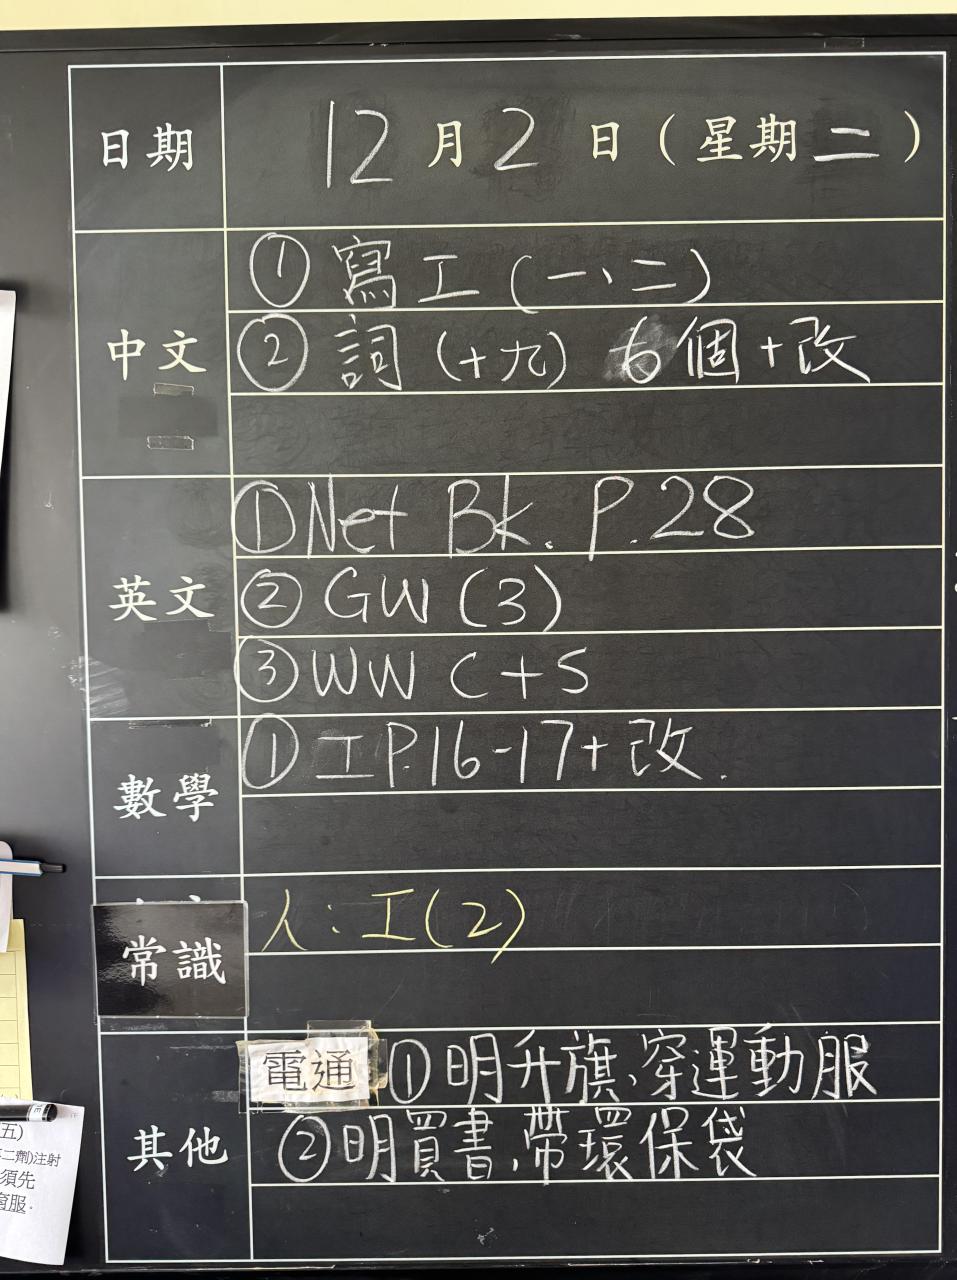 日期 12月2日(星期二)
中文
①寫工(一、二)
②詞(十九) 6個+改
英文
①Net Bk. P.28
②GW(3)
③WW C+S
數學
①工P.16-17+改.
常識
人:工(2)
其他
電通 ①明升旗、穿運動服
②明買書,帶環保袋
五)
二劑)注射
須先